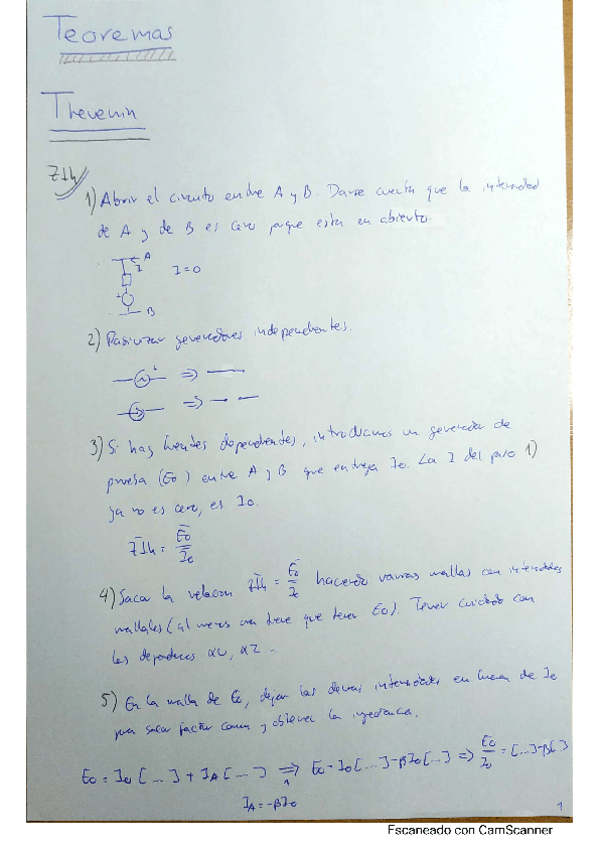 Teoremas
Thevenin
Zth
1) Abrir el circuito entre A y B. Darse cuenta que la intensidad
de A y de B es cero porque esta en abierto.
A
I
I=0
B
2) Pasivizar generadores independientes.
⇒
⇒
3) Si hay fuentes dependientes, introducimos un generador de
prueba (E₀) entre A y B que entrega I₀. La I del paso 1)
ya no es cero, es I₀.
Zth = E₀/I₀
4) Sacar la relacion Zth = E₀/I₀ haciendo varias mallas con intensidades
mallales (al menos una tiene que tener E₀). Tener cuidado con
las dependencias αU, αI...
5) En la malla de E₀, dejar las demas intensidades en funcion de I₀
para sacar factor comun y obtener la impedancia.
E₀ = I₀ [...] + I_A [...] ⇒ E₀ = I₀[...] -βI₀[...] ⇒ E₀/I₀ = [...] -β[ ]
I_A = -βI₀
1
Escaneado con CamScanner